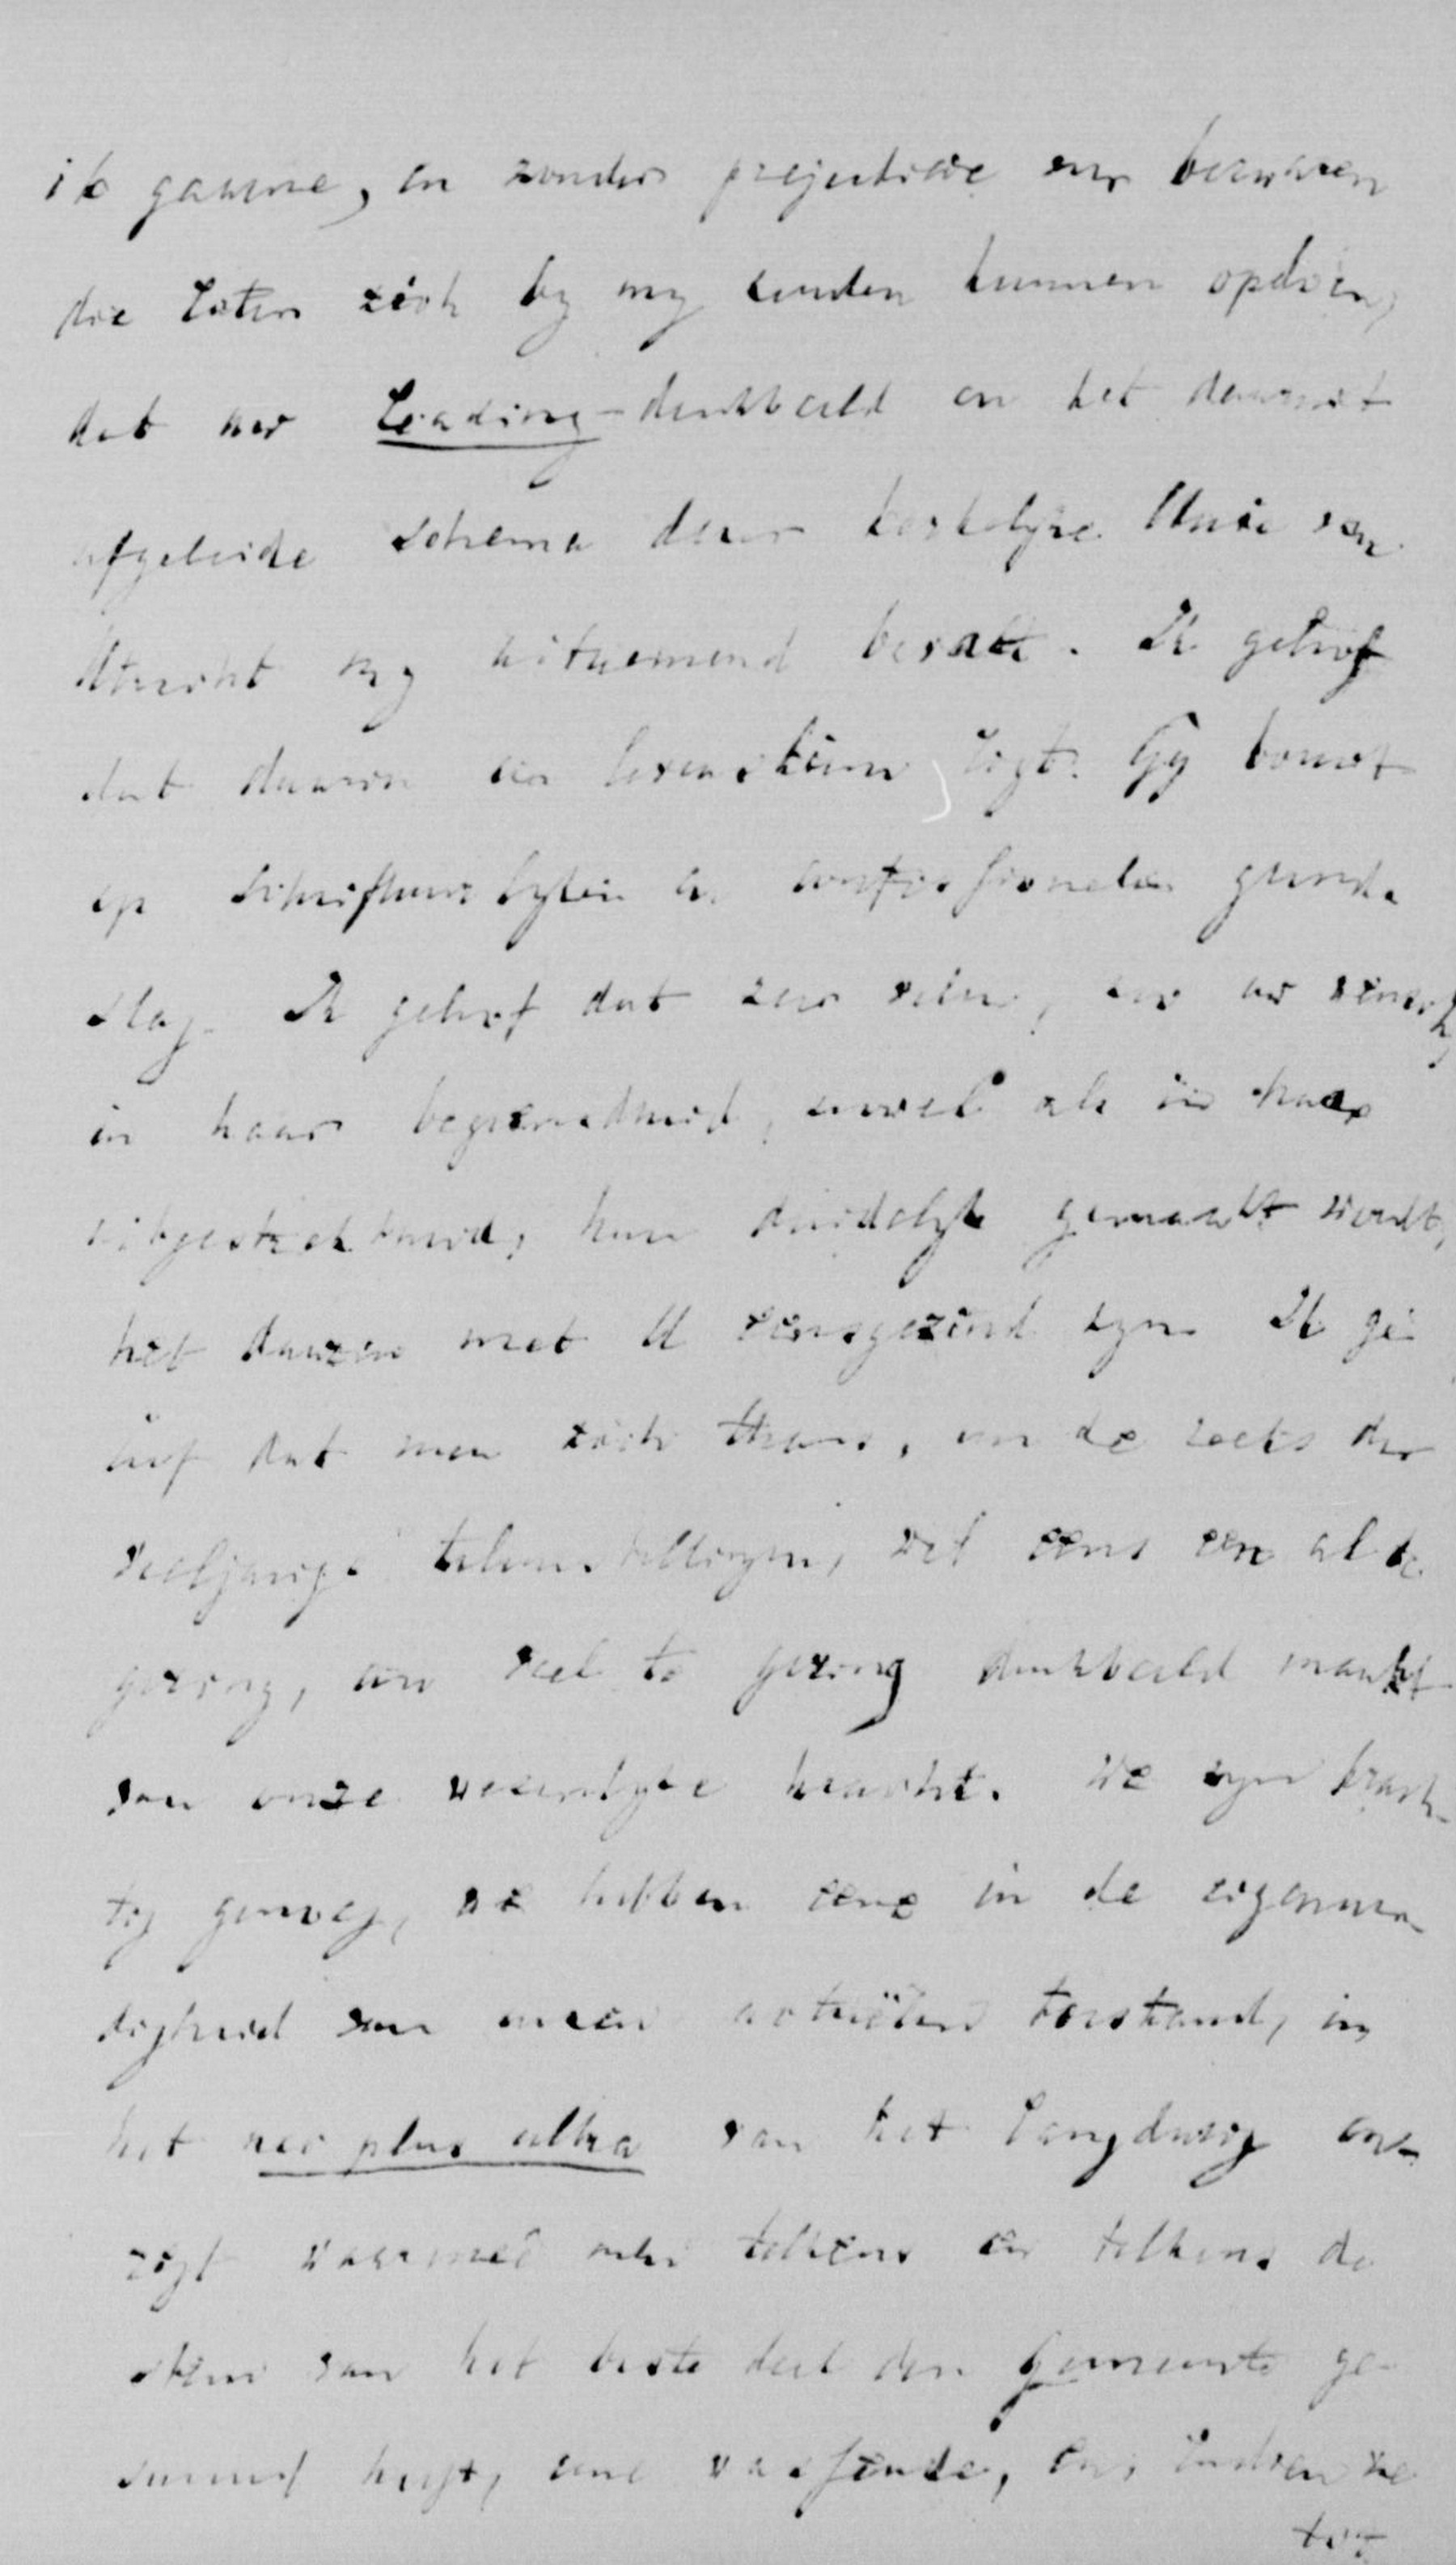 ik gaarne, en zonder prejudicie van bezwaren
die later zich by my zouden kunnen opdoen,
dat uw Leading-denkbeeld en het daaruit
afgeleide schema dezer kerkelyke Unie van
Utrecht my uitnemend bevalt. Ik geloof
dat daarin een levenskiem ligt. Gy bouwt
op Schriftuurlyken en confessionelen grond-
slag. Ik geloof dat zeer velen, en uw wensch,
in haar begrensdheid, zoowel als in haar
uitgestrektheid, hun duidelyk gemaakt wordt,
het daarin met U eensgezind zyn. Ik ge-
loof dat men zich thans, na de reeks der
veeljarige teleurstellingen, wel eens een al te
gering, een veel te gering denkbeeld maakt
van onze wezenlyke kracht. We zyn krach-
tig genoeg, we hebben eene in de eigenaar-
digheid van onzen actuëlen toestand, in
het nec plus ultra van het langdurig on-
regt waarmeê men telkens en telkens de
stem van het beste deel der Gemeente ge-
smoord heeft, eene vasfende, en, indien we
tot